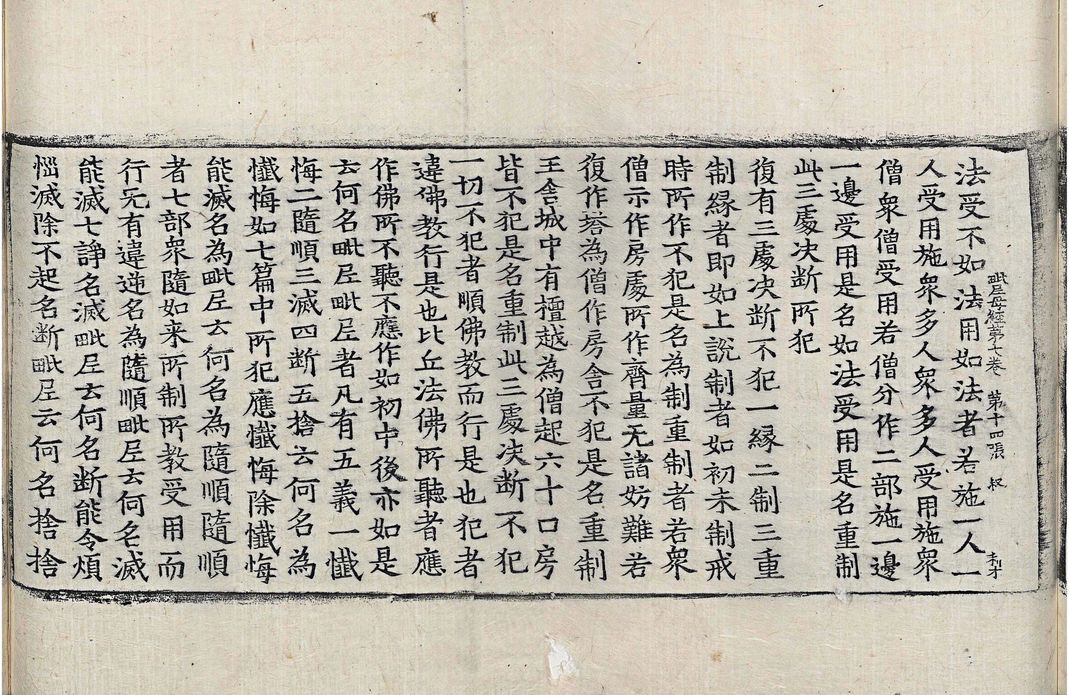 毗尼母經第七卷　第十四張　叔
法受不如法用如法者若施一人一
人受用施衆多人衆多人受用施衆
僧衆僧受用若僧分作二部施一邊
一邊受用是名如法受用是名重制
此三處决断所犯
復有三處决断不犯一縁二制三重
制縁者即如上說制者如初未制戒
時所作不犯是名為制重制者若衆
僧示作房處所作齊量无諸妨難若
復作塔為僧作房舍不犯是名重制
王舍城中有檀越為僧起六十口房
皆不犯是名重制此三處决断不犯
一切不犯者順佛教而行是也犯者
違佛教行是也比丘法佛所聽者應
作佛所不聽不應作如初中後亦如是
云何名毗尼毗尼者凡有五義一懺
悔二隨順三滅四断五捨云何名為
懺悔如七篇中所犯應懺悔除懺悔
能滅名為毗尼云何名為隨順隨順
者七部衆隨如来所制所教受用而
行无有違逆名為隨順毗尼云何名滅
能滅七諍名滅毗尼云何名断能令煩
惱滅除不起名断毗尼云何名捨捨